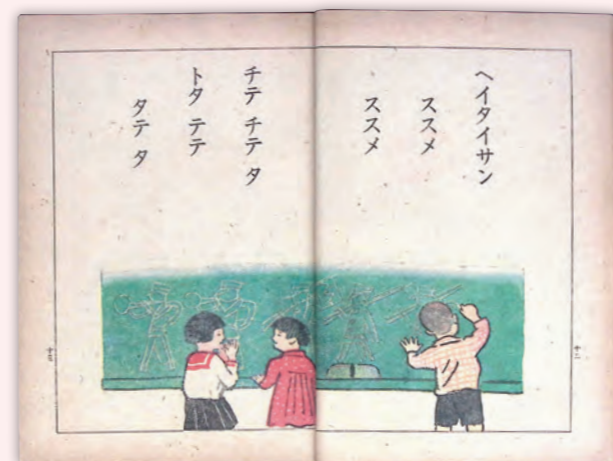 ヘイタイサン
ススメ
ススメ
十二
チテ チテ タ
トタ テテ
タテ タ
十三